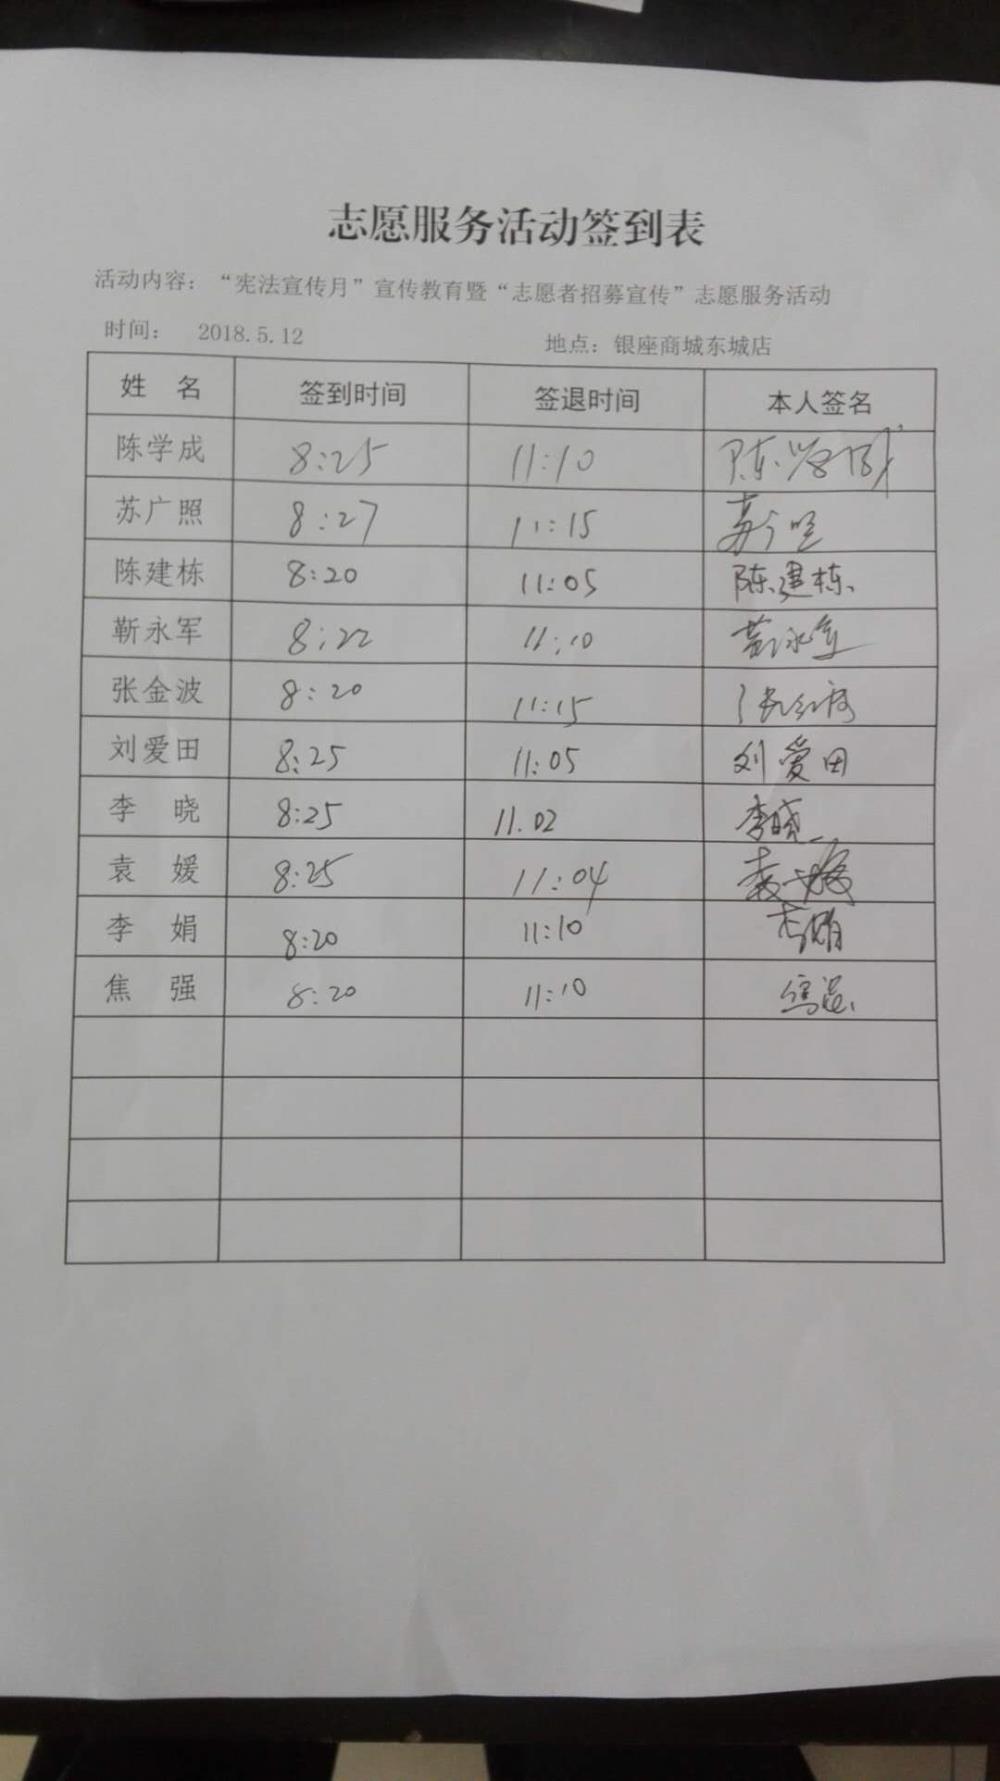 志愿服务活动签到表
活动内容：“宪法宣传月”宣传教育暨“志愿者招募宣传”志愿服务活动
时间： 2018.5.12 地点：银座商城东城店
姓 名 签到时间 签退时间 本人签名
陈学成 8:25 11:10 陈学成
苏广照 8:27 11:15 苏广照
陈建栋 8:20 11:05 陈建栋
靳永军 8:22 11:10 靳永军
张金波 8:20 11:15
刘爱田 8:25 11:05 刘爱田
李 晓 8:25 11.02 李晓
袁 媛 8:25 11:04 袁媛
李 娟 8:20 11:10 李娟
焦 强 8:20 11:10 焦强